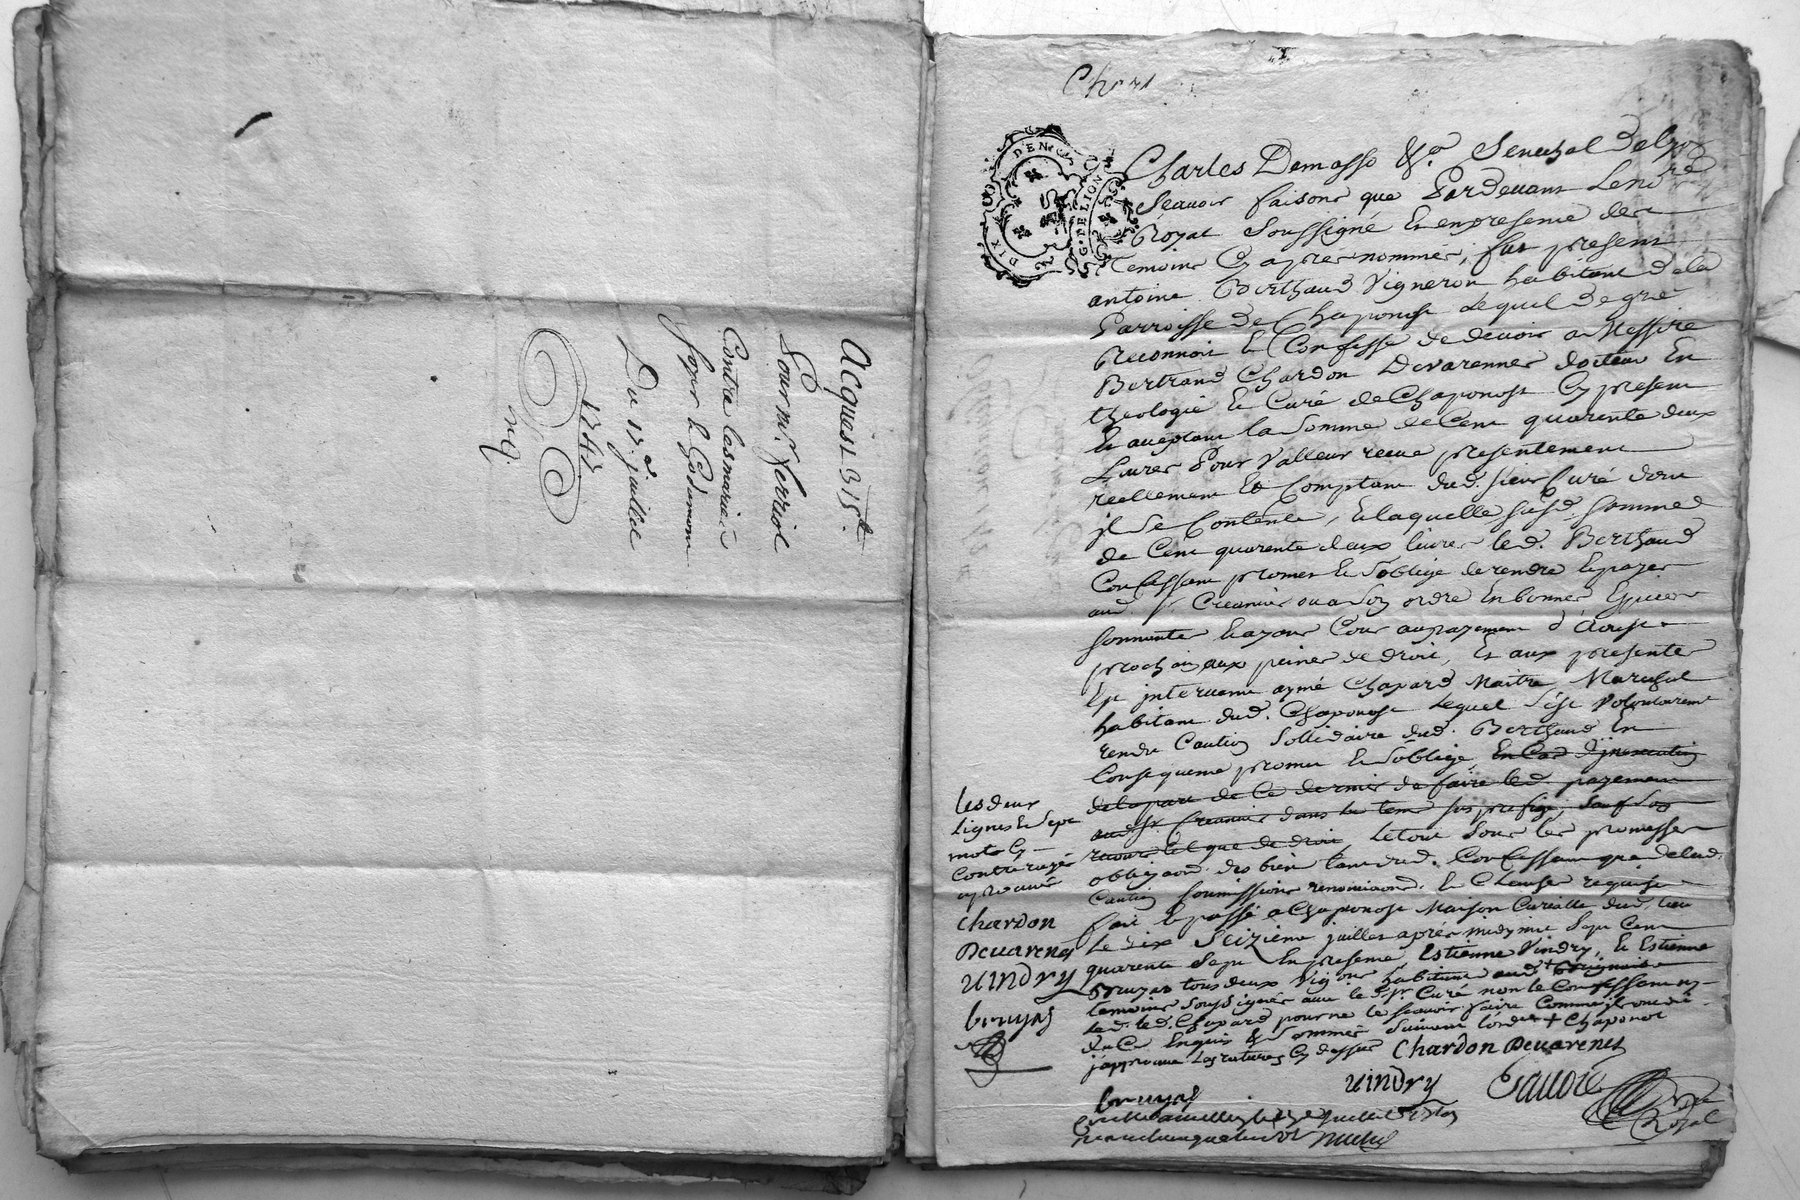 Acquest 315 ₶
Pour mr. ferriol
Contre les mariés
foyer & Godemon
Du 17e. juillet
1747
nq.
Char
DIX DEN. G. DE LION
Charles Demasso &a. Senechal de lyon
Scavoir faisons que Pardevant Le nore
Royal soussigné et en presence des
temoins cy apres nommés, fut present
antoine Berthaud Vigneron habitant de la
Parroisse de Chaponost lequel de gré
Reconnoit et Confesse de devoir a Messire
Bertrand Chardon Devarennes docteur En
theologie et Curé de Chaponost cy present
et aceptant la somme de Cent quarente deux
Livres Pour valleur recue presentement
reellement et Comptant dud. sieur Curé dont
il se Contente, et laquelle susd. somme
de Cent quarente deux livres led. Berthaud
Confessant promet et s'oblige de rendre et payer
aud. sr Creancier ou a son ordre en bonnes Especes
sonnantes et ayant Cour au payement d'Aoust
prochain aux peines de droit, et aux presentes
Est intervenu aymé Chapard Maitre Marechal
habitant dud. Chaponost lequel s'est volontairement
rendu Caution sollidaire dud. Berthaud En
Consequence promet et s'oblige, en Cas d'inexecution
de la part de Ce dernier de faire led. payement
aud. sr Creancier dans le tems sus prefigé, sauf son
recours tel que de droit, Le tout sous les promesses
obligaons. des biens tant dud. Confessant que de lad.
Caution soumissions renonciaons. et Clauses requises
fait et passé a Chaponost Maison Curialle dud. lieu
Le dix Seizieme juillet après midy mil sept Cent
quarente sept En presence Estienne Vindry, et Estienne
Bruyas tous deux Vignerons habitant aud. + Brignais
temoins soussignés avec led. sr Curé non le Confessant ny
led. Chapard pour ne le scavoir faire Comme ils ont dit
de Ce Enquis & sommés suivant l'ordce + Chaponost
j'approuve les ratures cy dessus Chardon Devarenes
vindry
bruyas
Royal
les deux
Lignes et sept
mots cy
contre rayés
approuvés
Chardon
Devarenes
vindry
bruyas